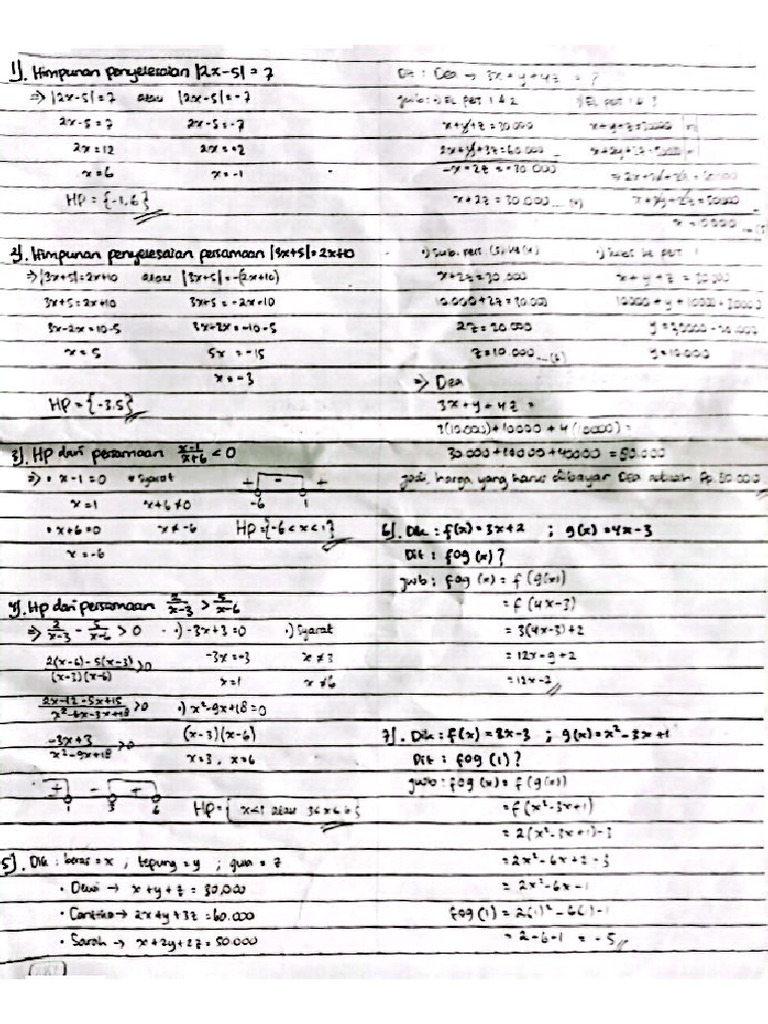 1). Himpunan penyelesaian |2x-5| = 7
⇒ |2x-5| = 7 atau |2x-5| = -7
2x-5 = 7 2x-5 = -7
2x = 12 2x = -2
x = 6 x = -1
HP = {-1, 6}
2). Himpunan penyelesaian persamaan |3x+5| = 2x+10
⇒ |3x+5| = 2x+10 atau |3x+5| = -(2x+10)
3x+5 = 2x+10 3x+5 = -2x-10
3x-2x = 10-5 3x+2x = -10-5
x = 5 5x = -15
x = -3
HP = {-3.5}
3). HP dari persamaan (x-1)/(x+6) < 0
⇒ • x-1 = 0 • Syarat + - +
x = 1 x+6 ≠ 0 -6 1
• x+6 = 0 x ≠ -6 HP = {-6 < x < 1}
x = -6
4). Hp dari persamaan 2/(x-3) > 5/(x-6)
⇒ 2/(x-3) - 5/(x-6) > 0 •) -3x+3 = 0 •) Syarat
(2(x-6)-5(x-3))/((x-3)(x-6)) > 0 -3x = -3 x ≠ 3
x = 1 x ≠ 6
(2x-12-5x+15)/(x²-6x-3x+18) > 0 •) x²-9x+18 = 0
(-3x+3)/(x²-9x+18) > 0 (x-3)(x-6)
x = 3, x = 6
+ - +
1 3 6 HP = { x<1 atau
5). Dik : beras = x, tepung = y ; gula = z
• Dewi → x+y+z = 30.000
• Cantika → 2x+y+3z = 60.000
• Sarah → x+2y+2z = 50.000
Dit : Dea → 3x+y+4z = ?
jwb : •) EL per 1 & 2
x+y+z = 30.000
2x+y+3z = 60.000
-x-2z = -30.000
x+2z = 30.000
x+2z = 30.000 x+y+z = 30.000
10.000+2z = 30.000 10000+y+10000 = 30000
2z = 20.000
z = 10.000 y = 10.000
⇒ Dea
3x+y+4z =
3(10.000)+10000+4(10000) =
30.000+10000+40000 = 80.000
Jadi, harga yang harus dibayar Dea Rp. 80.000
6). Dik : f(x) = 3x+2 ; g(x) = 4x-3
Dit : fog (x) ?
jwb : fog (x) = f(g(x))
= f(4x-3)
= 3(4x-3)+2
= 12x-9+2
= 12x-7
7). Dik : f(x) = 2x-3 ; g(x) = x²-3x+1
Dit : fog (1) ?
jwb : fog (x) = f(g(x))
= f(x²-3x+1)
= 2(x²-3x+1)-3
= 2x²-6x+2-3
= 2x²-6x-1
fog (1) = 2(1)²-6(1)-1
= 2-6-1 = -5